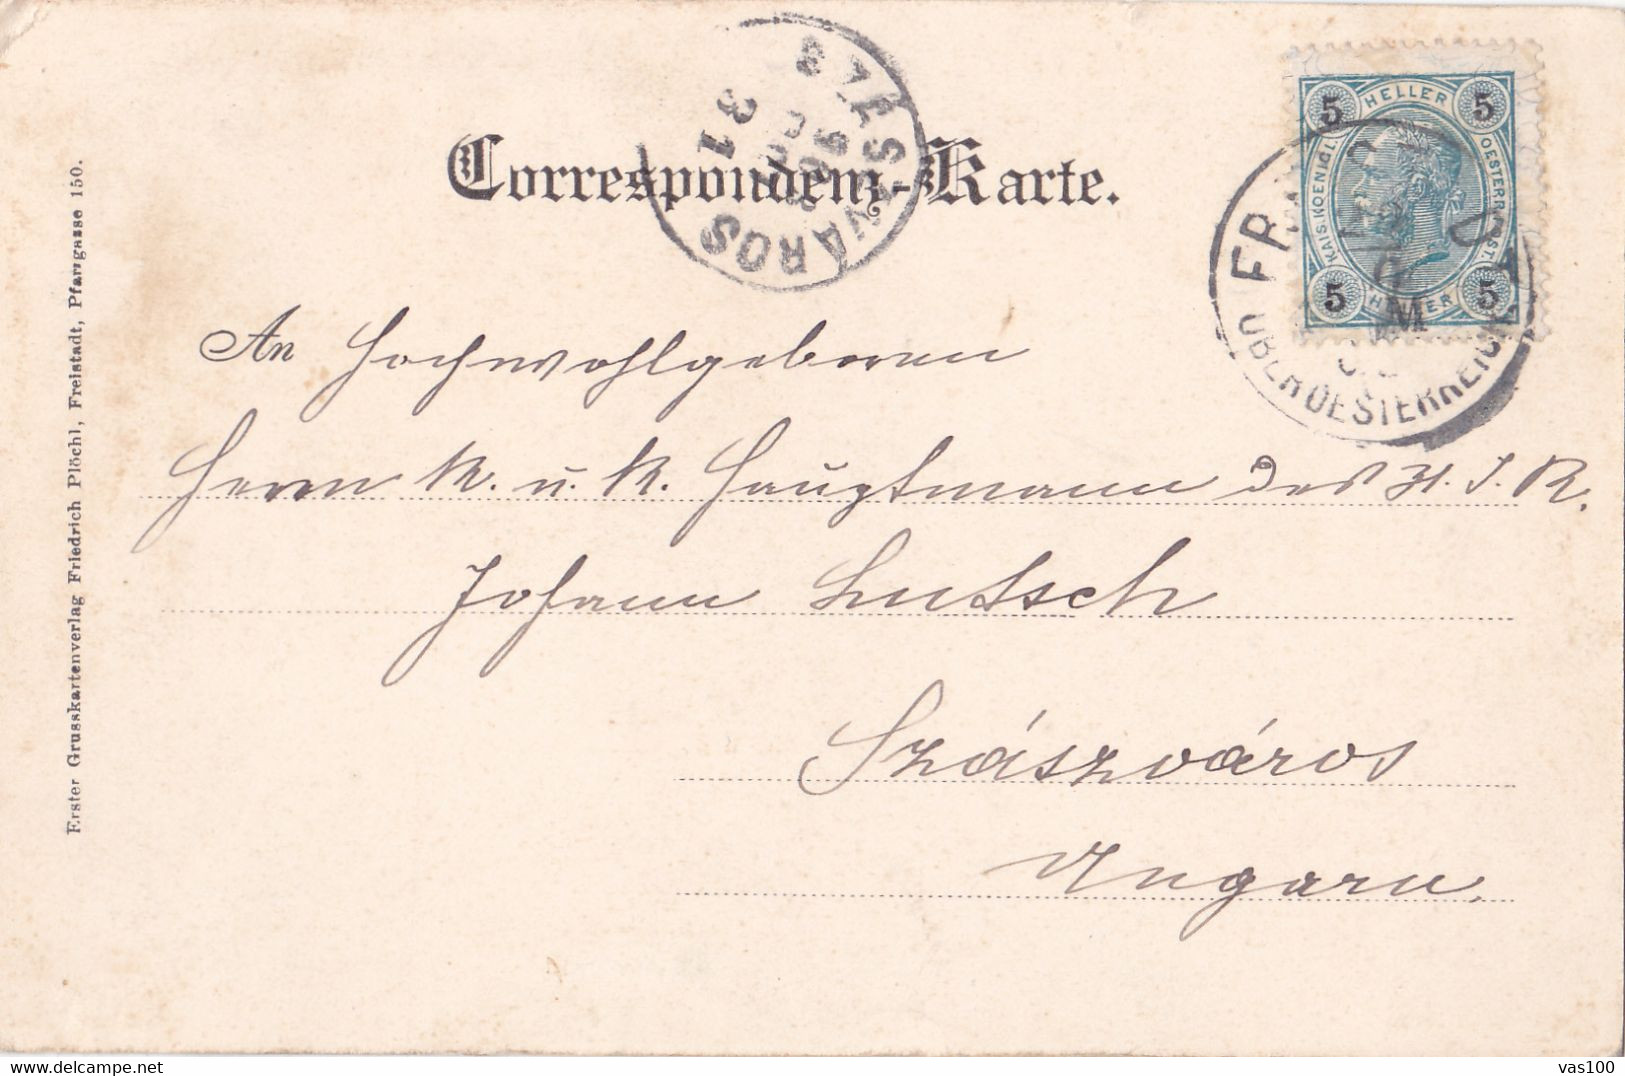 Correspondenz-Karte.
SZÁSZVÁROS
31
5 HELLER 5
KAIS. KOENIGL. OESTERR. POST.
5 HELLER 5
OBEROESTERREICH
An Hochwohlgeboren
Herrn K. u. K. Hauptmann des H. I. R.
Johann Lutssch
Szászváros
Ungarn.
Erster Grusskartenverlag Friedrich Plöchl, Freistadt, Pfarrgasse 150.
delcampe.net
vas100